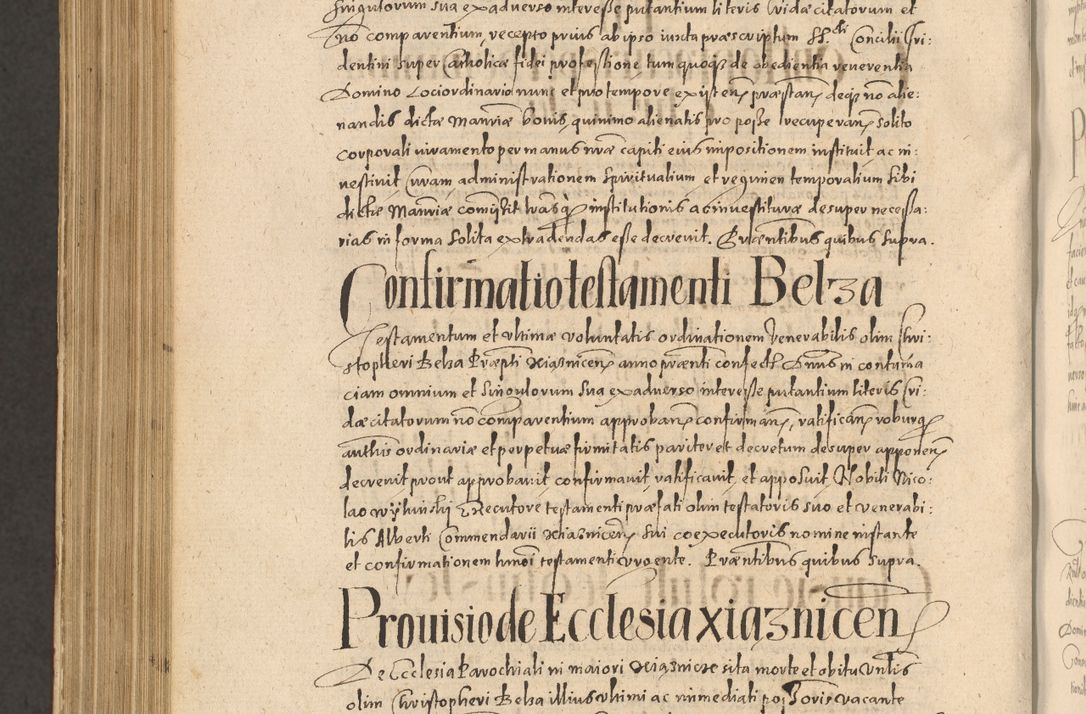 singulorum sua ex adverso interesse putantium literis cridæ citatorum et
nō comparentium, recepto prius ab ipso iuxta præscriptum SS.cti Concilii Tri:
dentini super Catholicæ fidei professione tum quoqȝ de obedientia reverentia
Domino Loci ordinario nunc et pro tempore existenȝ præstanȝ deqȝ nō alie:
nandis dictæ Mansiæ bonis, quinimo alienatis pro posse recuperanȝ solito
corporali iuramento per manus nræ capiti eius impositionem instituit ac in:
vestivit Curam administrationem spiritualium et regimen temporalium sibi
dictæ Mansiæ comisit lrasqȝ institutionis ac investituræ desuper necessa:
rias in forma solita extradendas esse decrevit. Præntibus quibus supra.
Confirmatio testamenti Belza
Testamentum et ultimæ voluntatis ordinationem Venerabilis olim Chri:
stopheri Belza Præpti Xiaznicenȝ anno prænti confect. Dnus in contuma
ciam omnium et singulorum sua ex adverso interesse putantium literis cri:
dæ citatorum nō comparentium approbanȝ confirmanȝ, ratificanȝ roburqȝ
autthis ordinariæ et perpetuæ firmitatis pariter et decretum desuper apponenȝ
decrevit prout approbavit confirmavit ratificavit, et apposuit, Nobili Nico:
lao Wylinski Executore testamenti præfati olim testatoris suo et venerabi:
lis Alberti Commendarii Xiaznicenȝ sui coexecutoris nomine instante
et confirmationem hmōi testamenti urgente. Præntibus quibus supra.
Provisio de Ecclesia Xiaznicenȝ
De Ecclesia Parochiali in maiori Xiaznice sita morte et obitu Vnlis
olim Christopheri Belza illius ultimi ac immediati possoris vacante